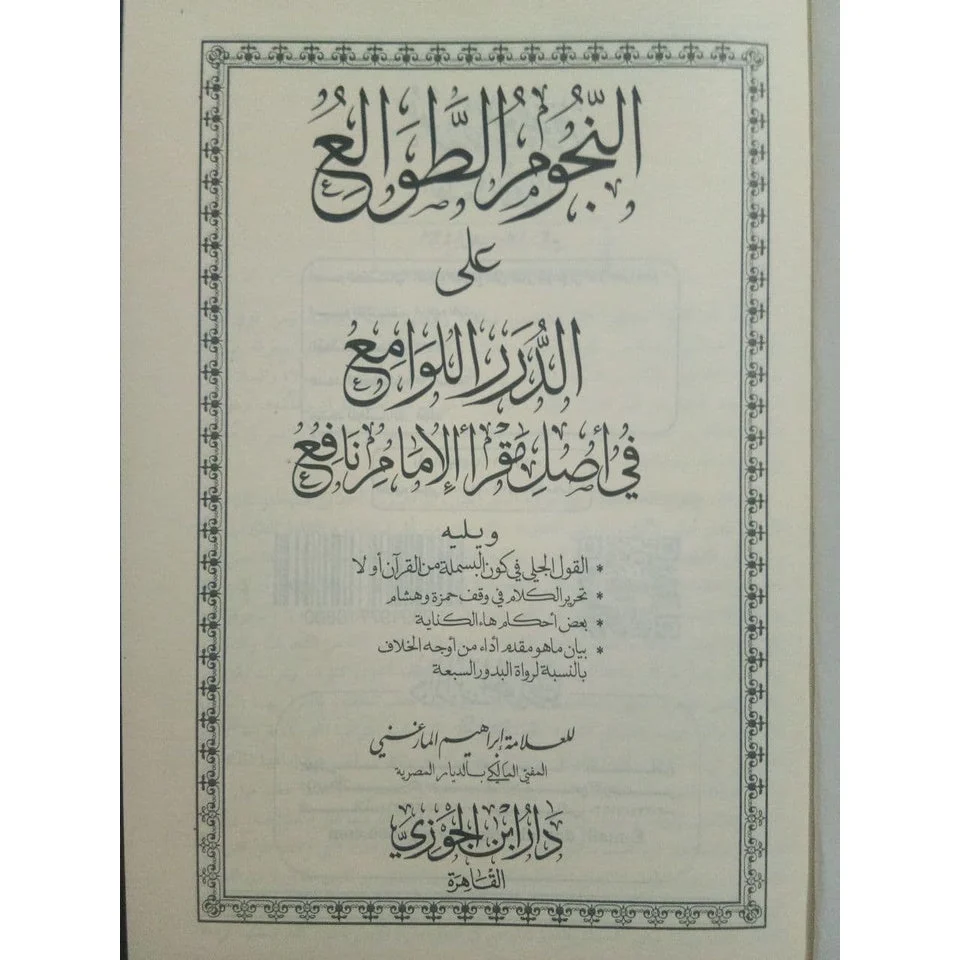 النُّجُومُ الطَّوَالِعُ
على
الدُّرَرِ اللَّوَامِعُ
فِي أَصْلِ مَقْرَأ الإِمَامِ نَافِعُ
ويليه
* القول الجلي في كون البسملة من القرآن أو لا
* تحرير الكلام في وقف حمزة وهشام
* بعض أحكام هاء الكناية
* بيان ما هو مقدم أداء من أوجه الخلاف
بالنسبة لرواة البدور السبعة
للعلامة إبراهيم المارغني
المفتي المالكي بالديار المصرية
دَارُ ابْنِ الجَوْزِيِّ
القَاهِرَة